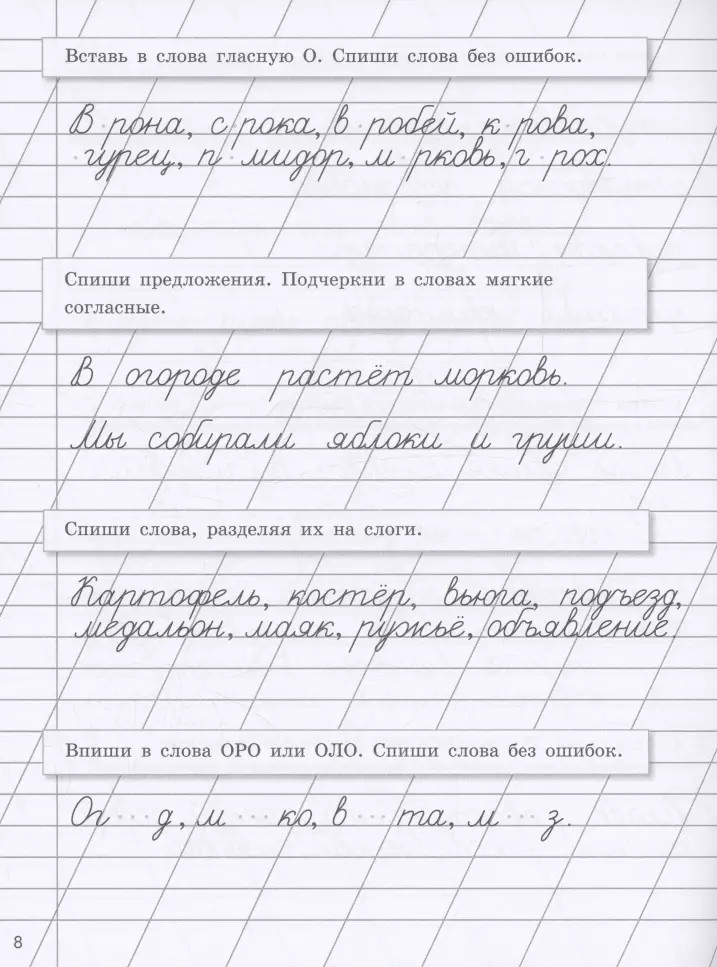 Вставь в слова гласную О. Спиши слова без ошибок.
В·рона, с·рока, в·робей, к·рова,
·гурец, п·мидор, м·рковь, г·рох.
Спиши предложения. Подчеркни в словах мягкие
согласные.
В огороде растёт морковь.
Мы собирали яблоки и груши.
Спиши слова, разделяя их на слоги.
Картофель, костёр, вьюга, подъезд,
медальон, маяк, ружьё, объявление.
Впиши в слова ОРО или ОЛО. Спиши слова без ошибок.
Ог···д, м···ко, в···та, м···з.
8